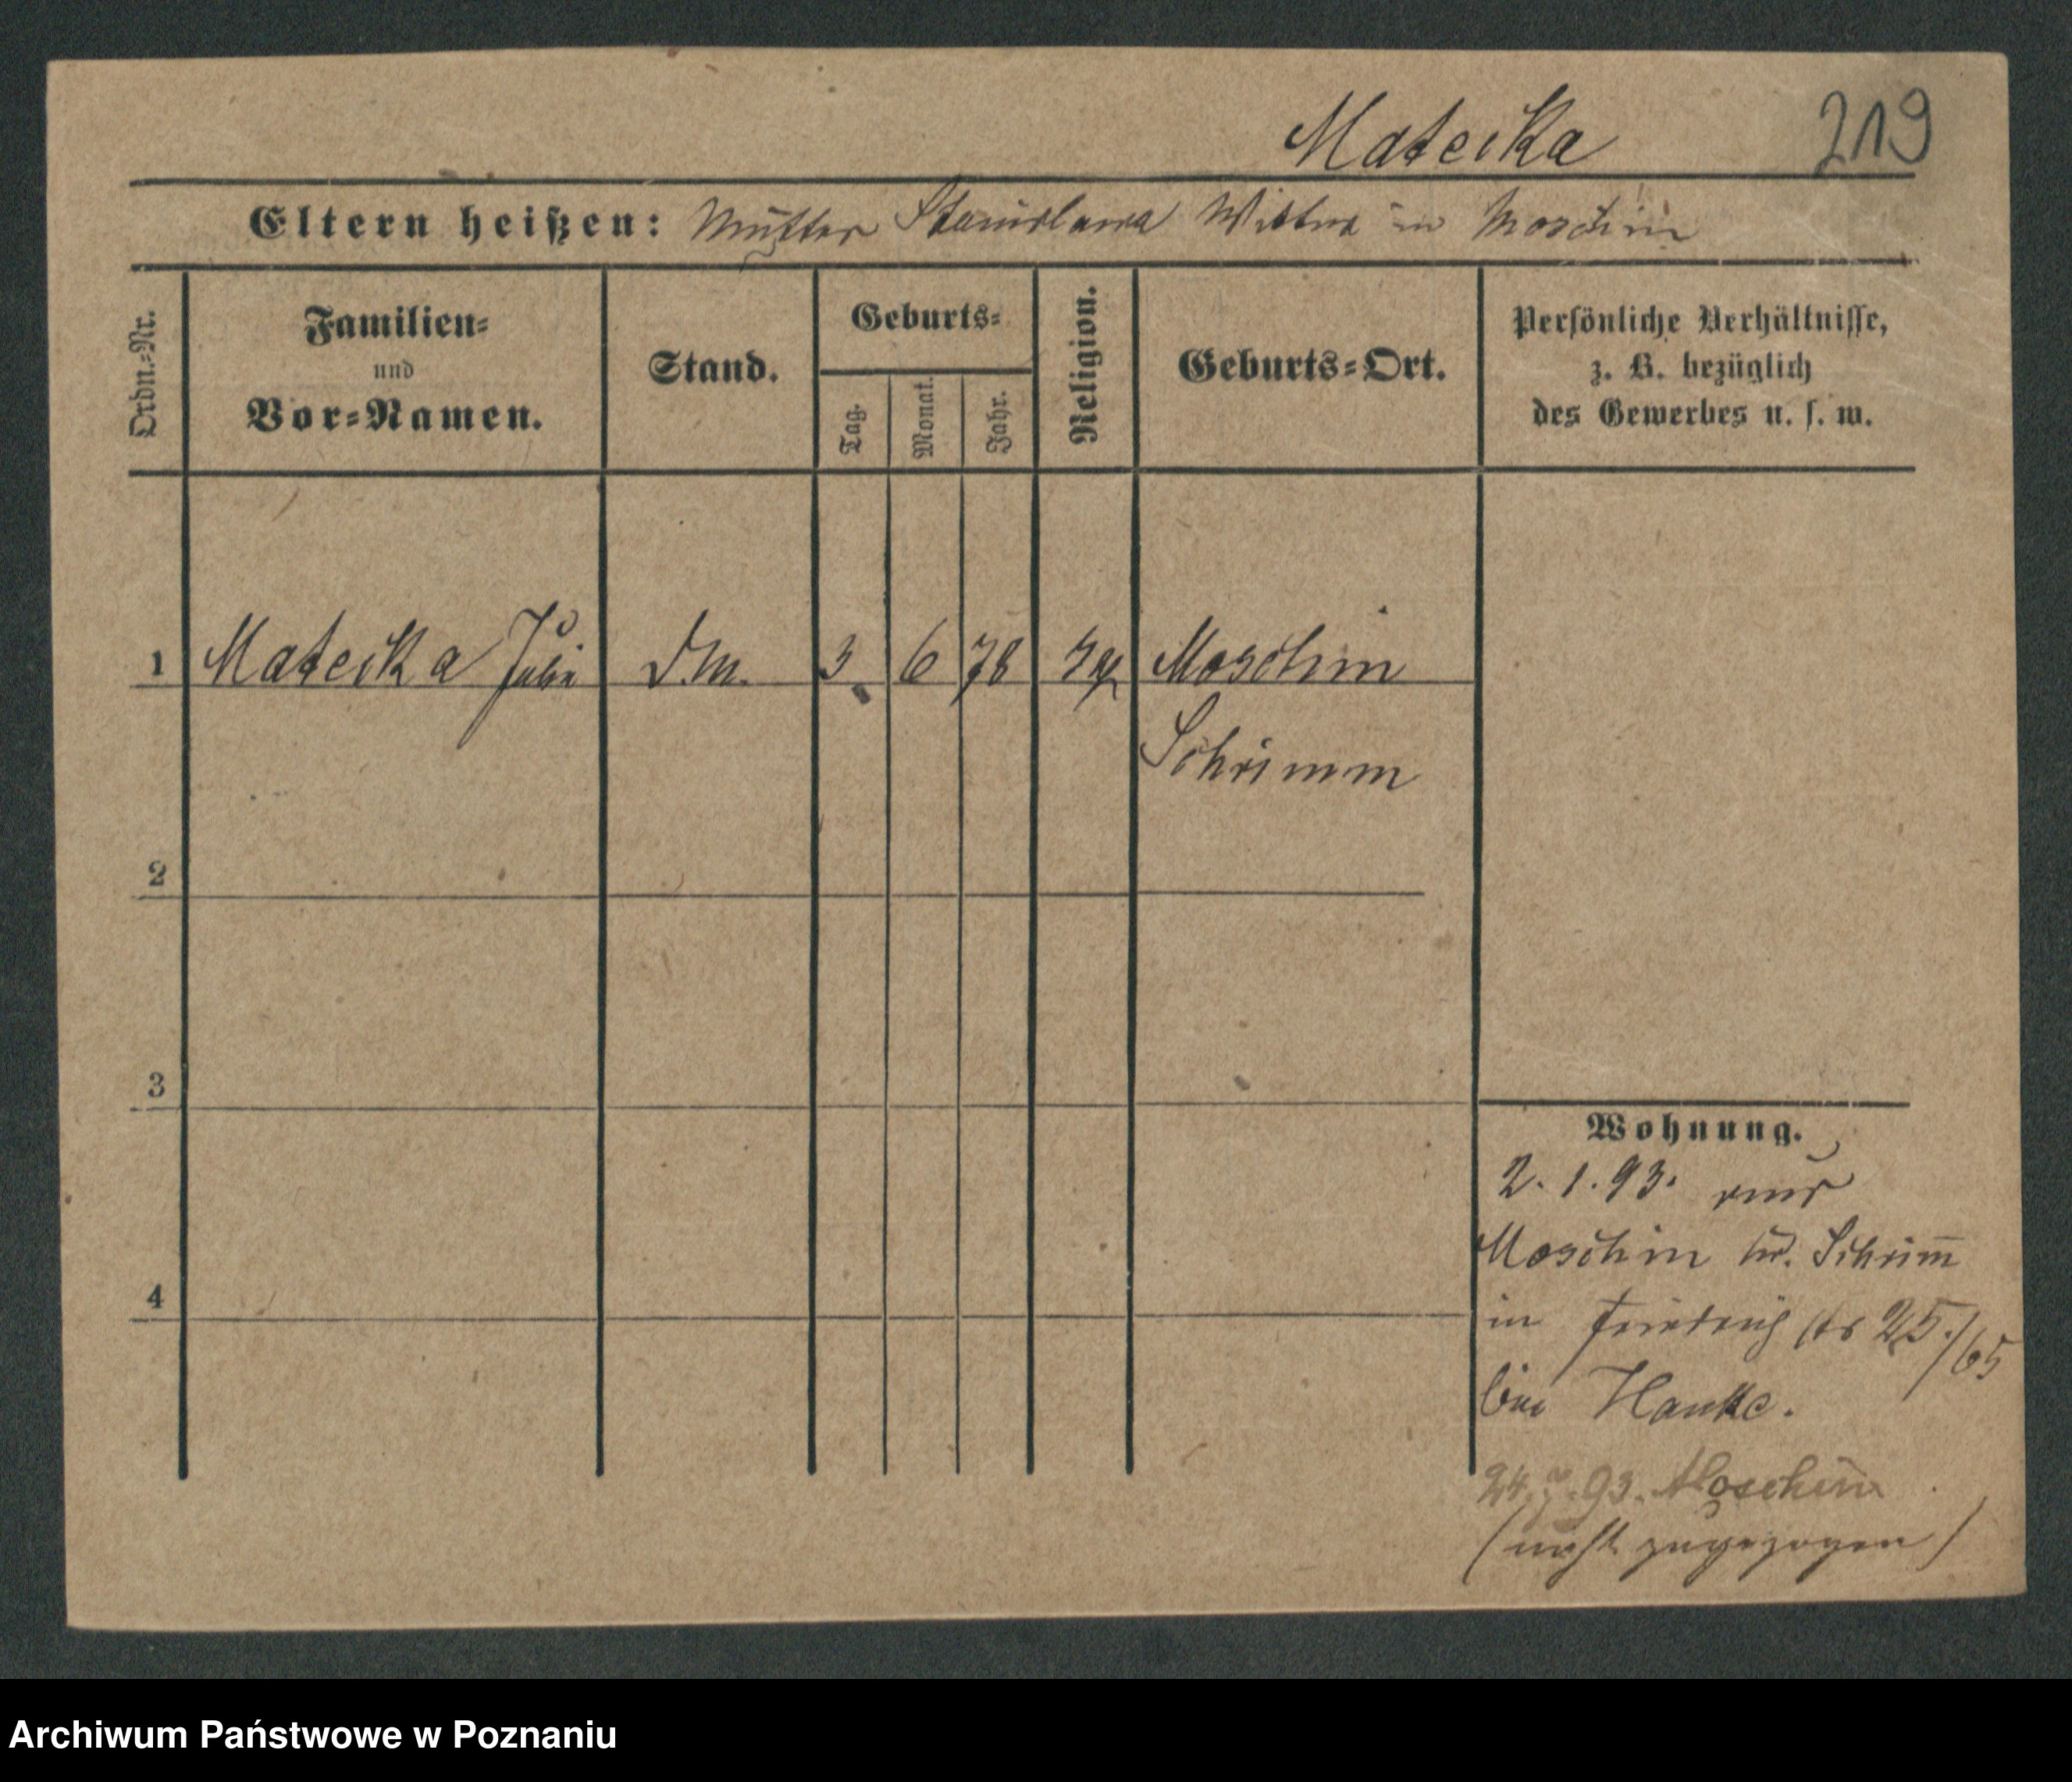 Mateika 219
Eltern heißen: Mutter Stanislawa Wittwe in Moschin
Ordn.-Nr.
Familien-
und
Vor-Namen.
Stand.
Geburts-
Tag.
Monat.
Jahr.
Religion.
Geburts-Ort.
Persönliche Verhältnisse,
z. B. bezüglich
des Gewerbes u. s. w.
1 Mateika Julie D.M. 3. 6 78 Moschin
Schrimm
2
3
4
Wohnung.
2. 1. 93. aus
Moschin Kr. Schrim̅
in Friedrichstr 25./65
bei Hanke.
24. 7. 93. Moschin
(nicht zugezogen)
Archiwum Państwowe w Poznaniu